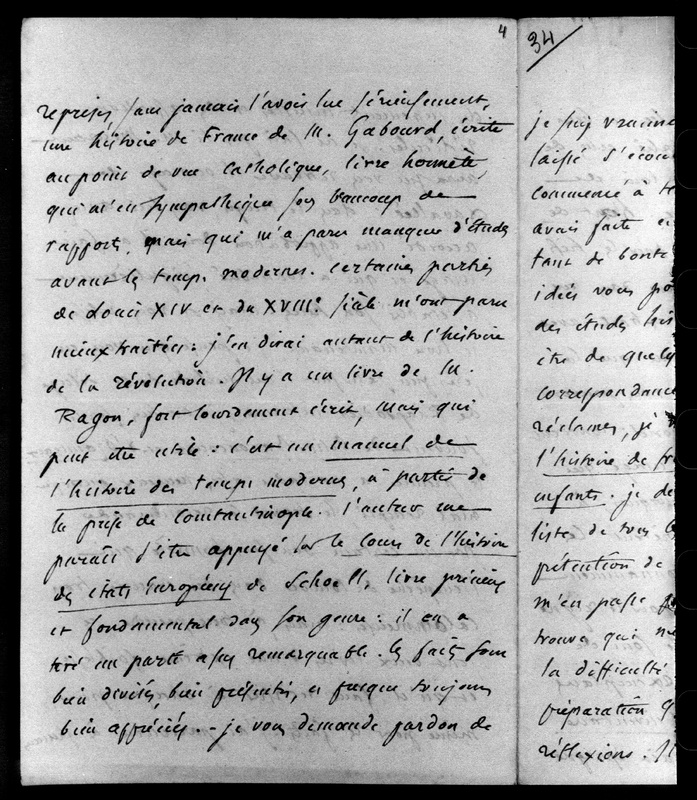 4
reprises, sans jamais l'avoir lue sérieusement,
une histoire de France de M. Gabourd, écrite
au point de vue catholique, livre honnête,
qui m'est sympathique sous beaucoup de
rapports, mais qui m'a paru manquer d'études
avant les temps modernes. certaines parties
de Louis XIV et du XVIIIe siècle m'ont paru
mieux traitées : j'en dirai autant de l'histoire
de la révolution. Il y a un livre de M.
Ragon, fort lourdement écrit, mais qui
peut être utile : c'est un manuel de
l'histoire des temps modernes, à partir de
la prise de Constantinople. l'auteur me
paraît s'être appuyé sur le cours de l'histoire
des états Européens de Schoell, livre précieux
et fondamental dans son genre : il en a
tiré un parti assez remarquable. les faits sont
bien divisés, bien présentés, et presque toujours
bien appréciés. - je vous demande pardon de
34
je suis vraiment
laissé s'écou
commencé à
avais faite
tant de bonté
idées vous
des études his
être de quelq
correspondance
réclamer, je
l'histoire de fr
enfants. je
liste de tous
prétention de
m'en passe
trouve qui
la difficulté
préparation
réflexions.